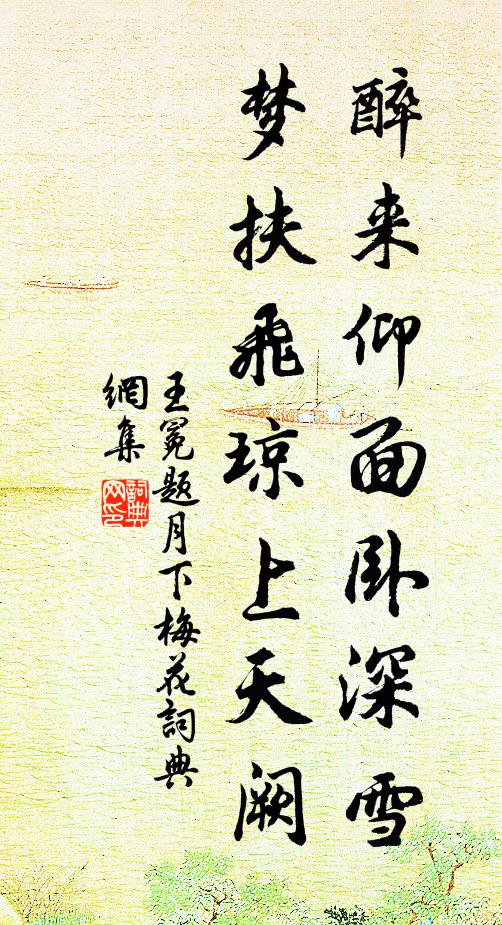 醉来仰面卧深雪
梦扶飛琼上天阙
王冕题月下梅花詞典
網集
詞典
网印